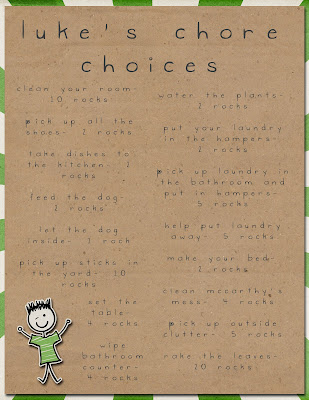 luke's chore
choices
clean your room-
10 rocks
pick up all the
shoes- 2 rocks
take dishes to
the kitchen- 2
rocks
feed the dog-
2 rocks
let the dog
inside- 1 rock
pick up sticks in
the yard- 10
rocks
set the
table-
4 rocks
wipe
bathroom
counter-
4 rocks
water the plants-
2 rocks
put your laundry
in the hampers-
2 rocks
pick up laundry in
the bathroom and
put in hampers-
5 rocks
help put laundry
away- 5 rocks
make your bed-
2 rocks
clean mccarthy's
mess- 4 rocks
pick up outside
clutter- 5 rocks
rake the leaves-
20 rocks